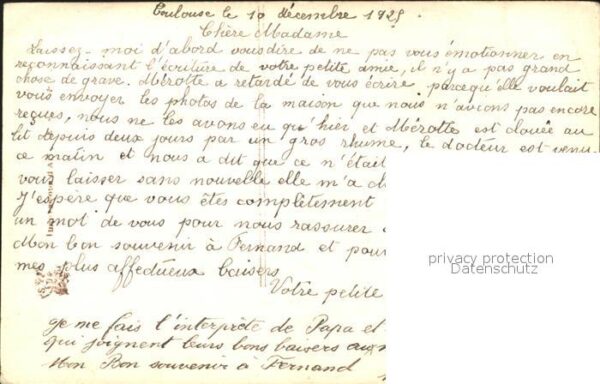 Toulouse le 10 décembre 1928
Chère Madame
Laissez-moi d'abord vous dire de ne pas vous émotionner en
reconnaissant l'écriture de votre petite amie, il n'y a pas grand
chose de grave. Mérotte a retardé de vous écrire parcequ'elle voulait
vous envoyer les photos de la maison que nous n'avions pas encore
reçues, nous ne les avons eu qu'hier et Mérotte est clouée au
lit depuis deux jours par un gros rhume, le docteur est venu
ce matin et nous a dit que ce n'était
vous laisser sans nouvelle elle m'a
J'espère que vous êtes complètement
un mot de vous pour nous rassurer
Mon bon souvenir à Fernand et pour
mes plus affectueux baisers
Votre petite
Je me fais l'interprète de Papa et
qui joignent leurs bons baisers aux
Mon Bon souvenir à Fernand
privacy protection
Datenschutz